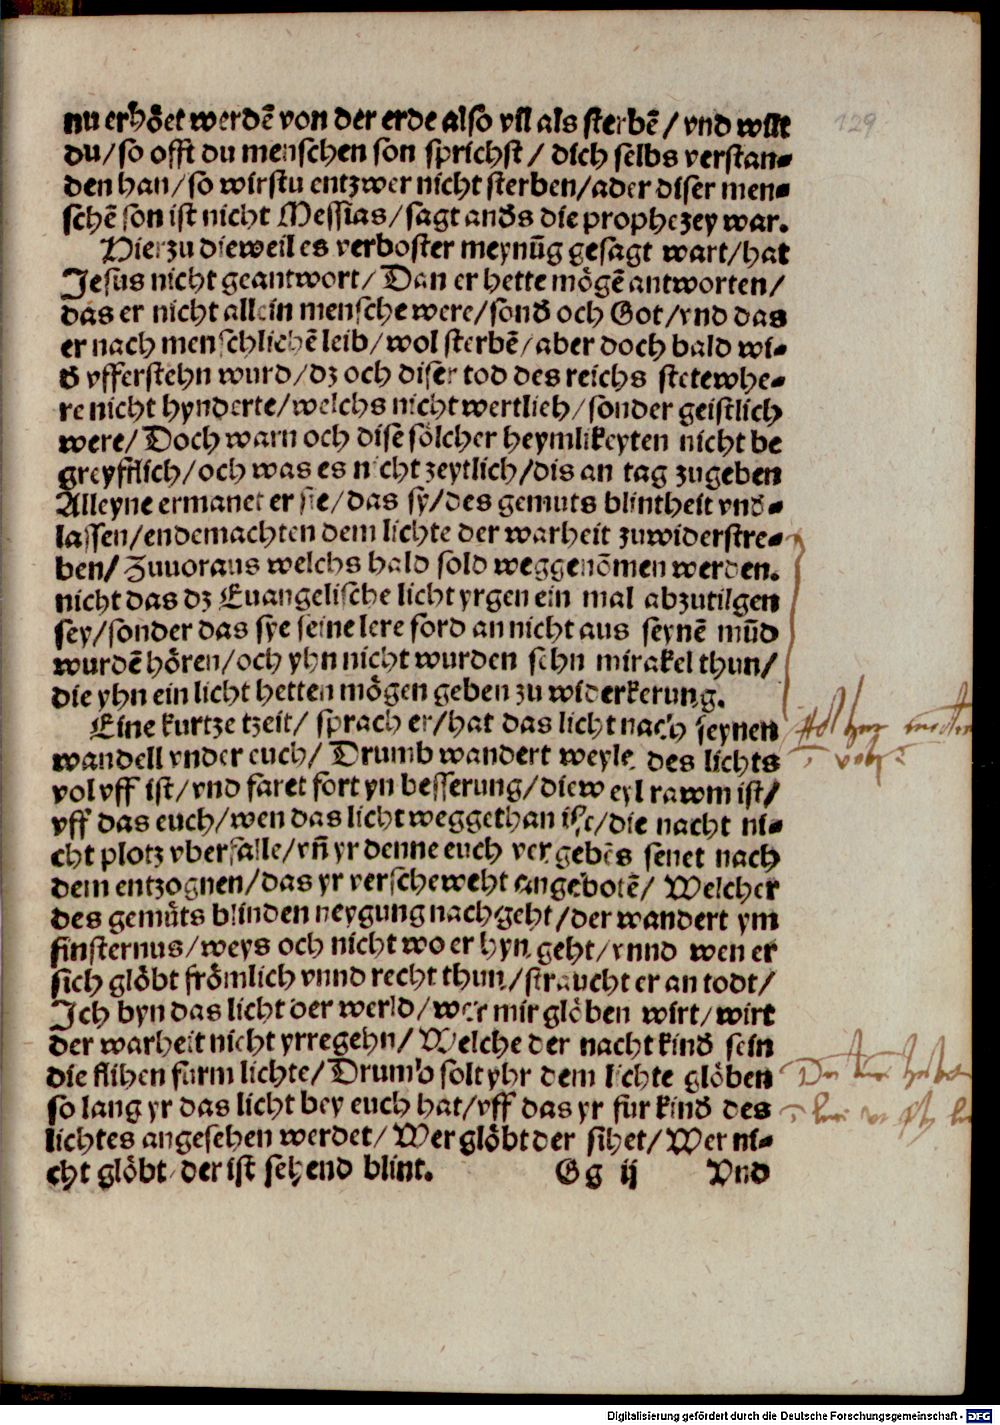 129
nu erhöet werdē von der erde also vil als sterbē/ vnd wilt
du/so offt du menschen son sprichst/ dich selbs verstan-
den han/so wirstu entzwer nicht sterben/ader diser men-
schē son ist nicht Messias/sagt anđs die prophezey war.
Hierzu dieweil es verboster meynūg gesagt wart/hat
Jesus nicht geantwort/ Dan er hette mögē antworten/
das er nicht allein mensche were/sonđ och Got/vnd das
er nach menschlichē leib/wol sterbē/aber doch bald wi-
đ vfferstehn wurd/dz och diser tod des reichs stetewhe-
re nicht hynderte/welchs nicht wertlich/sonder geistlich
were/ Doch warn och disē sölcher heymlikeyten nicht be
greyfflich/och was es nicht zeytlich/dis an tag zugeben
Alleyne ermanet er sie/das sy/des gemuts blintheit vnđ-
lassen/endemachten dem lichte der warheit zuwiderstre-
ben/ Zuuoraus welchs bald sold weggenōmen werden.
nicht das dz Euangelische licht yrgen ein mal abzutilgen
sey/sonder das sye seine lere ford an nicht aus seynē mūd
wurdē hören/och yhn nicht wurden sehn mirakel thun/
die yhn ein licht hetten mögen geben zu widerkerung.
Eine kurtze tzeit/ sprach er/hat das licht nach seynen
wandell vnder euch/ Drumb wandert weyle des lichts
vol vff ist/vnd faret fort yn besserung/dieweyl rawm ist/
vff das euch/wen das licht weggethan ist/die nacht ni-
cht plotz vberfalle/vñ yr denne euch vergebēs senet nach
dem entzognen/das yr verscheweht angebotē/ Welcher
des gemüts blinden neygung nachgeht/der wandert ym
finsternus/weys och nicht wo er hyn geht/vnnd wen er
sich glöbt frömlich vnnd recht thun/straucht er an todt/
Ich byn das licht der werld/wer mir glöben wirt/wirt
der warheit nicht yrregehn/ Welche der nacht kinđ sein
die flihen furm lichte/ Drumb solt yhr dem lichte glöben
so lang yr das licht bey euch hat/vff das yr fur kinđ des
lichtes angesehen werdet/ Wer glöbt der sihet/ Wer ni-
cht glöbt/der ist sehend blint. Gg ij Vnd
Digitalisierung gefördert durch die Deutsche Forschungsgemeinschaft - DFG